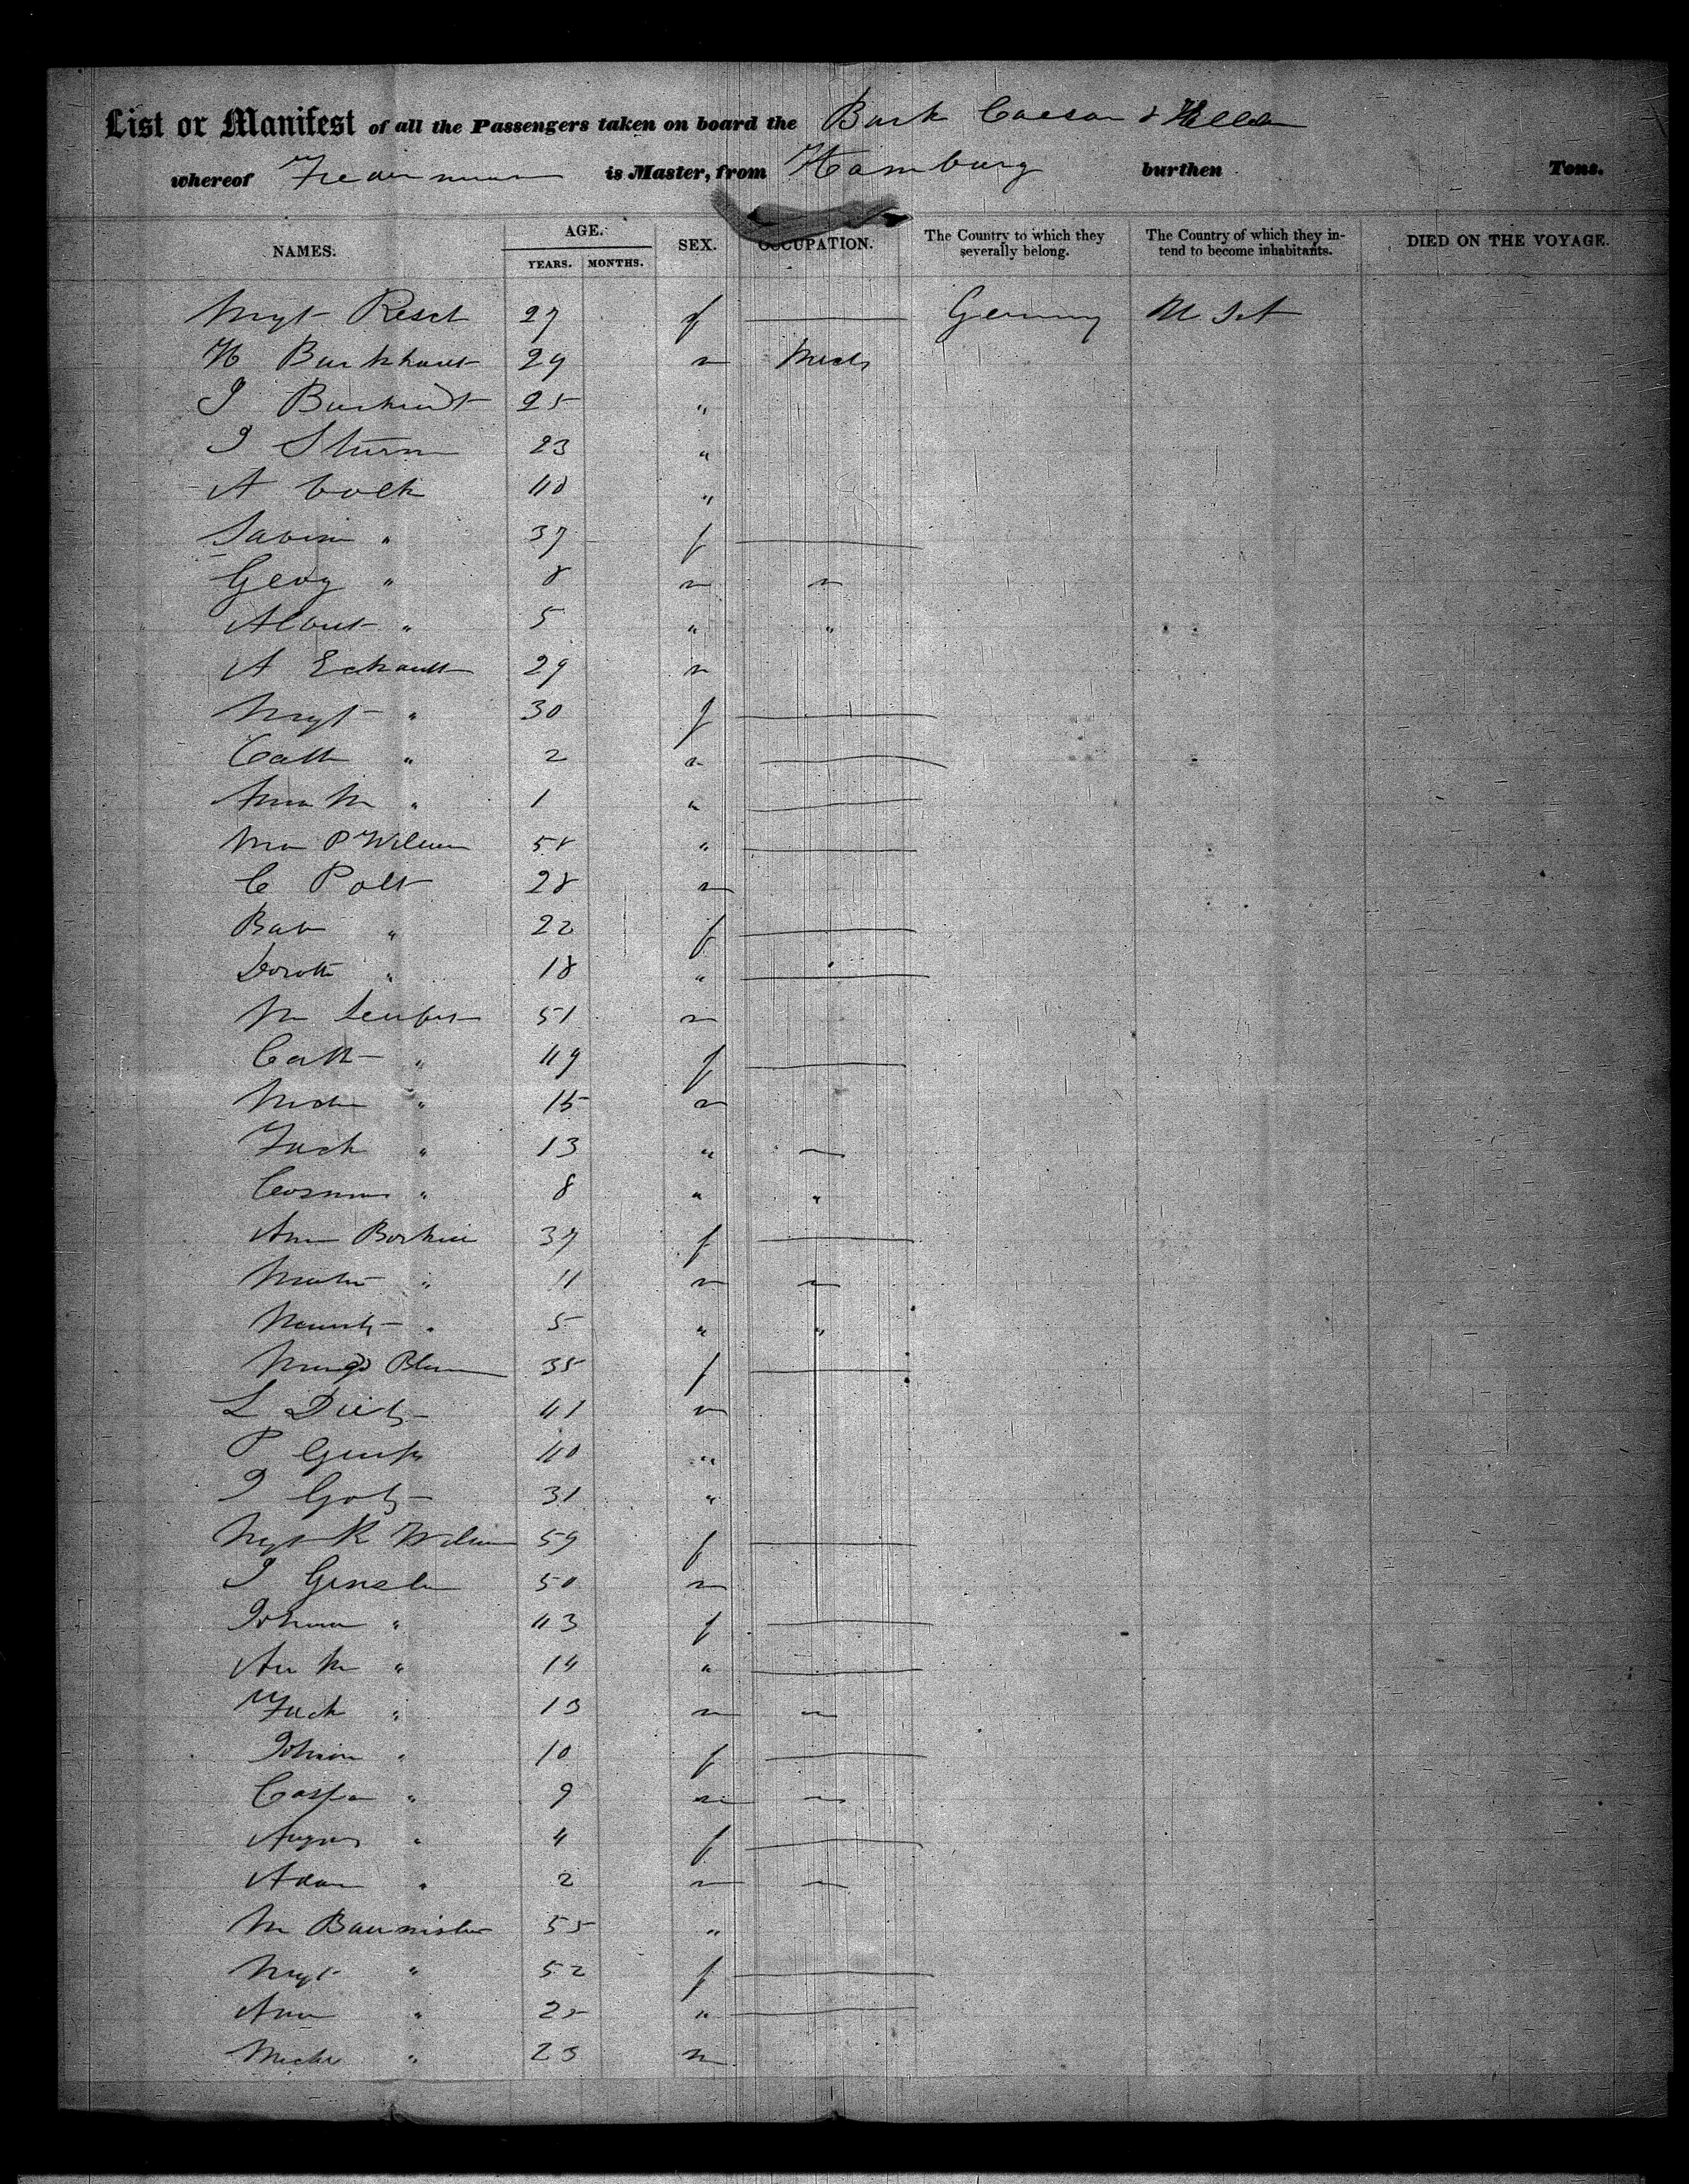 List or Manifest of all the Passengers taken on board the Bark Caesar & Helene
whereof is Master, from Hamburg burthen Tons.
NAMES. AGE. YEARS. MONTHS. SEX. OCCUPATION. The Country to which they severally belong. The Country of which they intend to become inhabitants. DIED ON THE VOYAGE.
Mgt Resch 27 f Germy U St
H Burkhart 29 m Mech
J Burkardt 25 "
J Sturm 23 "
A Volk 40 "
Sabin " 37 f
Geog " 8 m
Albert " 5 " "
A Eckardt 29 m
Mgt " 30 f
Cath " 2
Anna M " 1 "
"
C Polt 28 m
Bab " 22 f
Doroth " 18 "
M 51 m
Cath " 49 f
" 15 m
" 13 "
Cosmus " 8 " "
Ann 37 f
Martin " 11 m
" 5 " "
35 f
L Dietz 41 m
P 40 "
J Gotz 31 "
Mgt K 59 f
J Gensler 50 m
" 43 f
An M " 14 "
" 13 m
" 10 f
Caspar " 9 m
" 4 f
Adam " 2 m
M Baumister 55 "
Mgt " 52 f
Ann " 25 "
Michl " 23 m